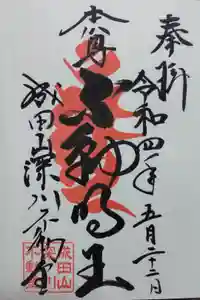 奉拝
令和四年五月二十二日
本尊
不動明王
成田山深川不動堂
成田山